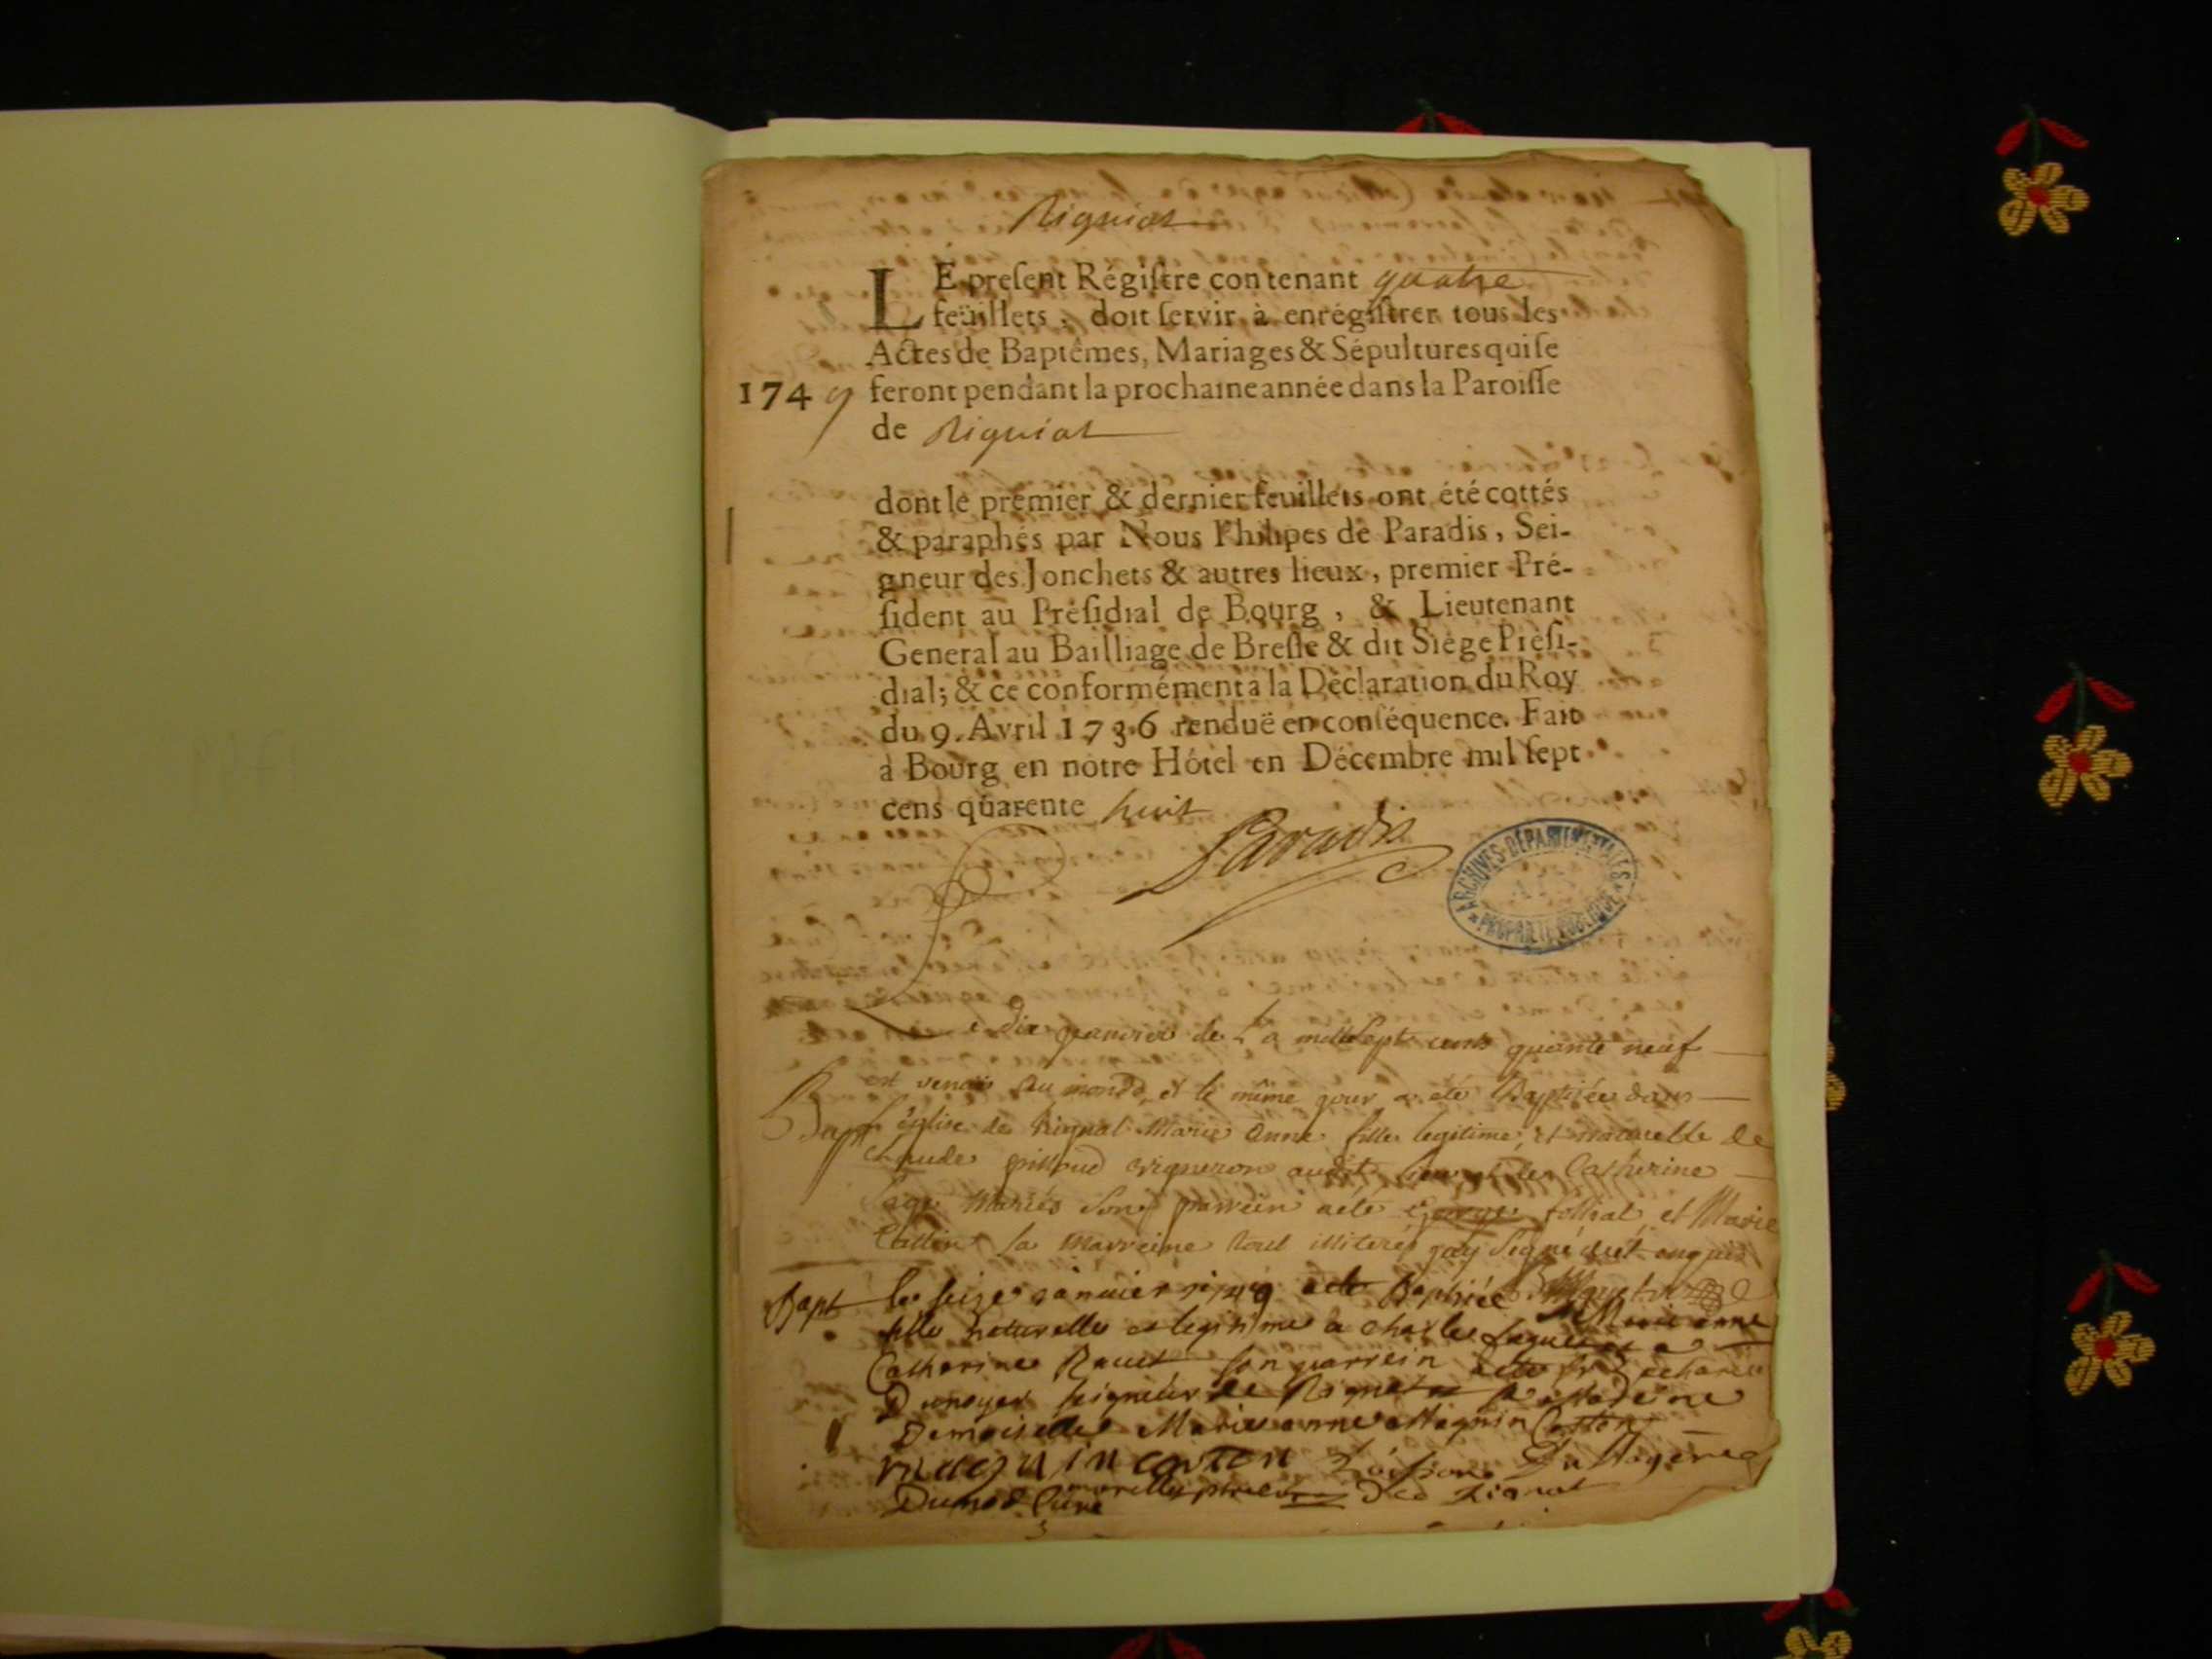 Rigniat
LE present Régistre contenant quatre
feüillets, doit servir à enrégistrer tous les
Actes de Baptêmes, Mariages & Sépultures qui se
1749 feront pendant la prochaine année dans la Paroisse
de Rigniat
dont le premier & dernier feuillets ont été cottés
& paraphés par Nous Philipes de Paradis, Sei-
gneur des Jonchets & autres lieux, premier Pré-
sident au Présidial de Bourg, & Lieutenant
General au Bailliage de Bresse & dit Siége Prési-
dial; & ce conformément à la Déclaration du Roy
du 9. Avril 1736 renduë en conséquence. Fait
à Bourg en nôtre Hôtel en Décembre mil sept
cens quarente huit
Paradis
ARCHIVES DÉPARTEMENTALES
AIN
PROPRIÉTÉ PUBLIQUE
Le Dix janvier de mille sept cents quarante neuf
est venue au monde et le même jour a été Baptisée dans
Bapt l'église de Rignat Marie Anne fille legitime et naturelle de
Claude vigneron audit et de Catherine
mariés Son parrein a été George et Marie
la Marreine tout
Bapt le seize janvier 1749 a été Baptisée
Marie anne
fille naturelle et legitime a charles
Catherine son parrein a été
Dunoyer seigneur de Rignat la Mareine
Demoiselle Marie anne Magnin Cotton
magnin cotton
Dumas Curé de Rignat